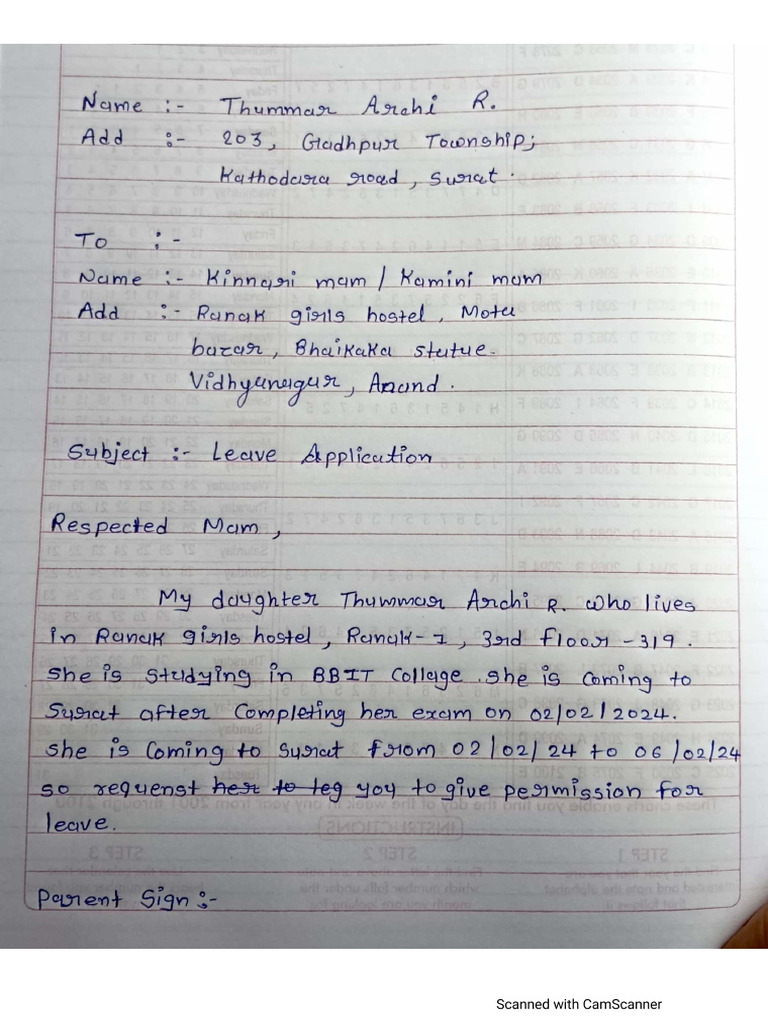 Name :- Thummar Archi R.
Add :- 203, Gadhpur Township;
Kathodara road, Surat.
To :-
Name :- Kinnari mam / Kamini mam
Add :- Ranak girls hostel, Mota
bazar, Bhaikaka statue.
Vidhyanagar, Anand.
Subject :- Leave Application
Respected Mam,
My daughter Thummar Archi R. who lives
in Ranak girls hostel, Ranak-1, 3rd floor -319.
she is studying in BBIT Collage. she is coming to
Surat after completing her exam on 02/02/2024.
she is coming to surat from 02/02/24 to 06/02/24
so requenst her to teg you to give permission for
leave.
Parent Sign :-
Scanned with CamScanner